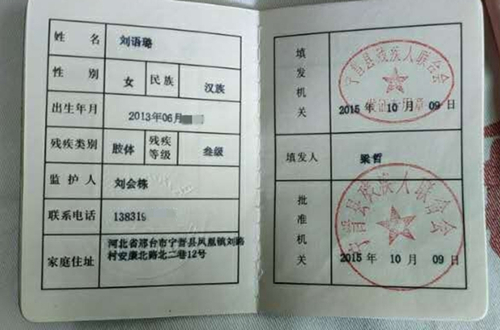 姓 名 刘语璐
性 别 女 民族 汉族
出生年月 2013年06月
残疾类别 肢体 残疾等级 叁级
监护人 刘会栋
联系电话 13831
家庭住址 河北省邢台市宁晋县凤凰镇刘路
村安康北路北二巷12号
填发机关 宁晋县残疾人联合会
2015年 10月 09日
填发人 梁哲
批准机关 宁晋县残疾人联合会
2015年 10月 09日